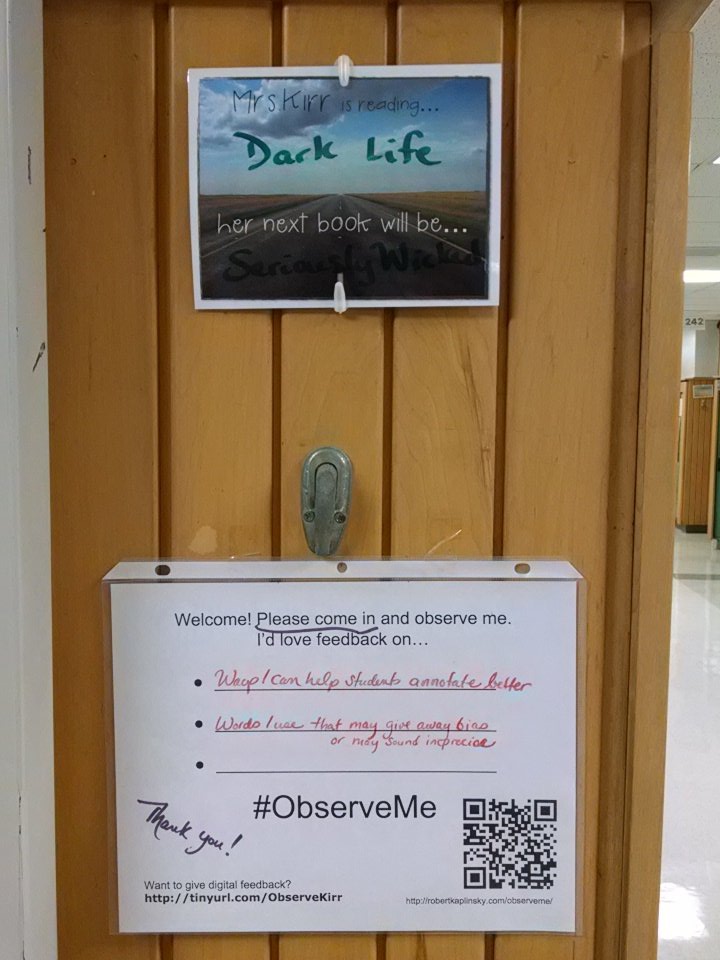 Mrs Kirr is reading...
Dark Life
her next book will be...
Seriously Wicked
242
Welcome! Please come in and observe me.
I'd love feedback on...
• Ways I can help students annotate better
• Words I use that may give away bias
or may sound imprecise
•
#ObserveMe
Thank you!
Want to give digital feedback?
http://tinyurl.com/ObserveKirr
http://robertkaplinsky.com/observeme/